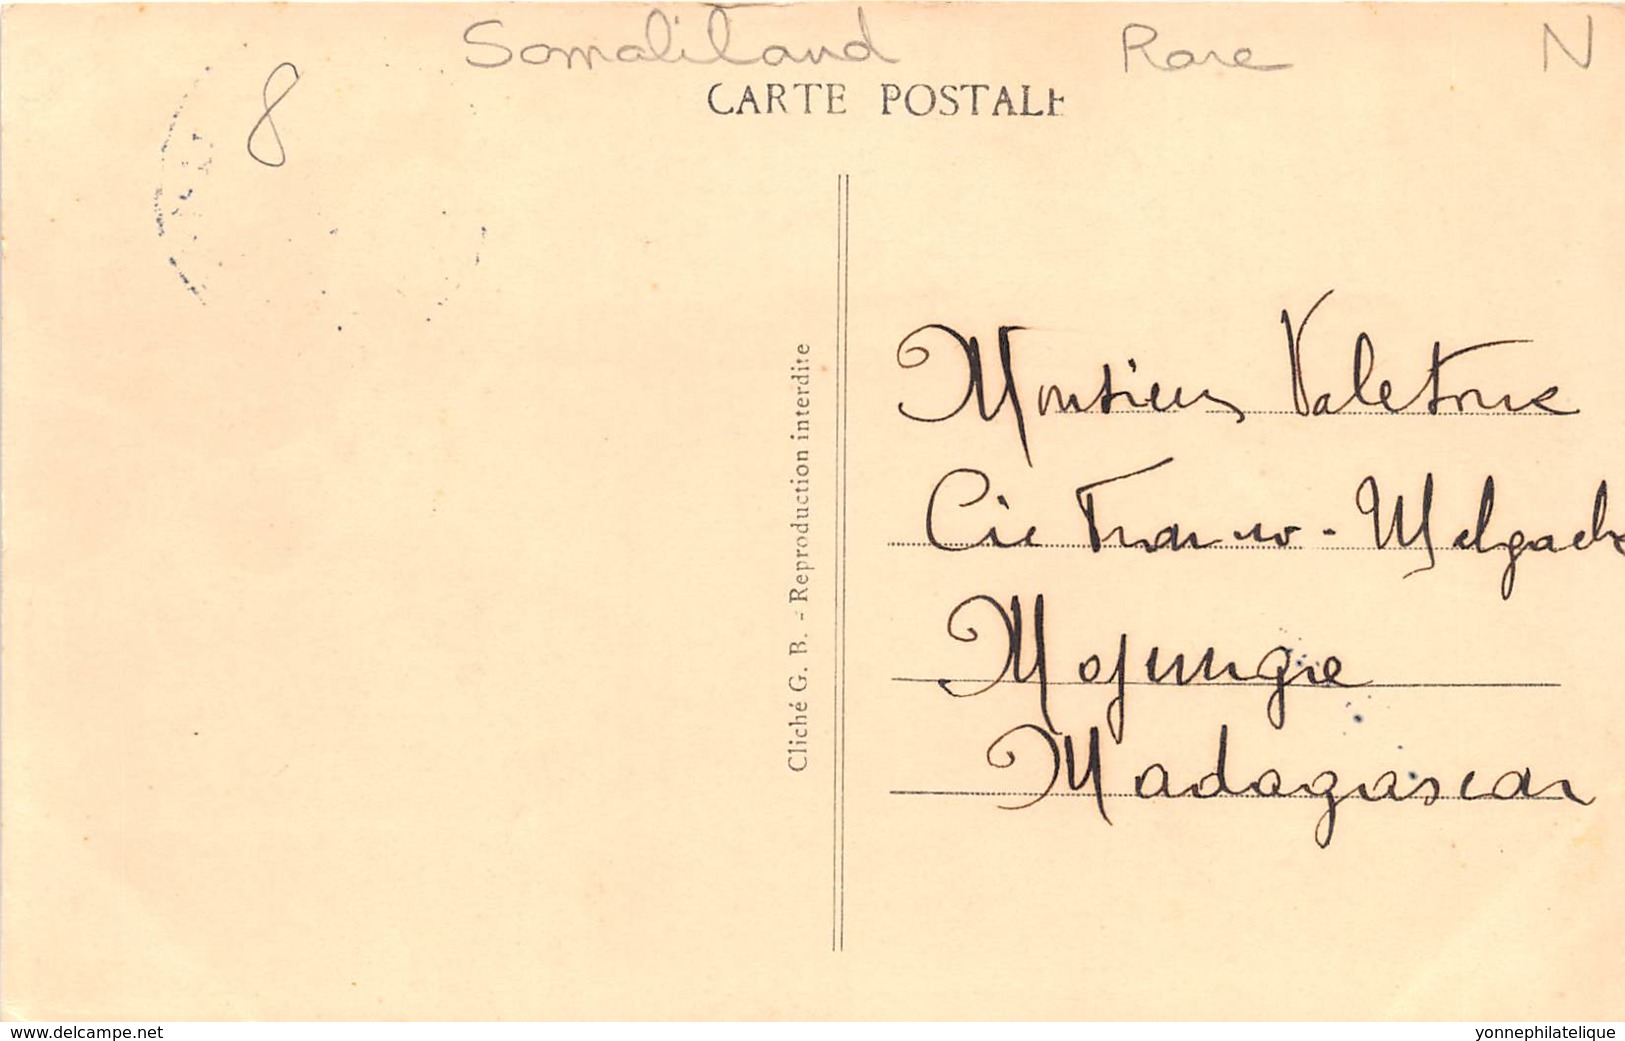 Somaliland Rare N
8
CARTE POSTALE
Cliché G. B. - Reproduction interdite
Monsieur
Cie Franco - Malgache
Mojungre
Madagascar
www.delcampe.net
yonnephilatelique